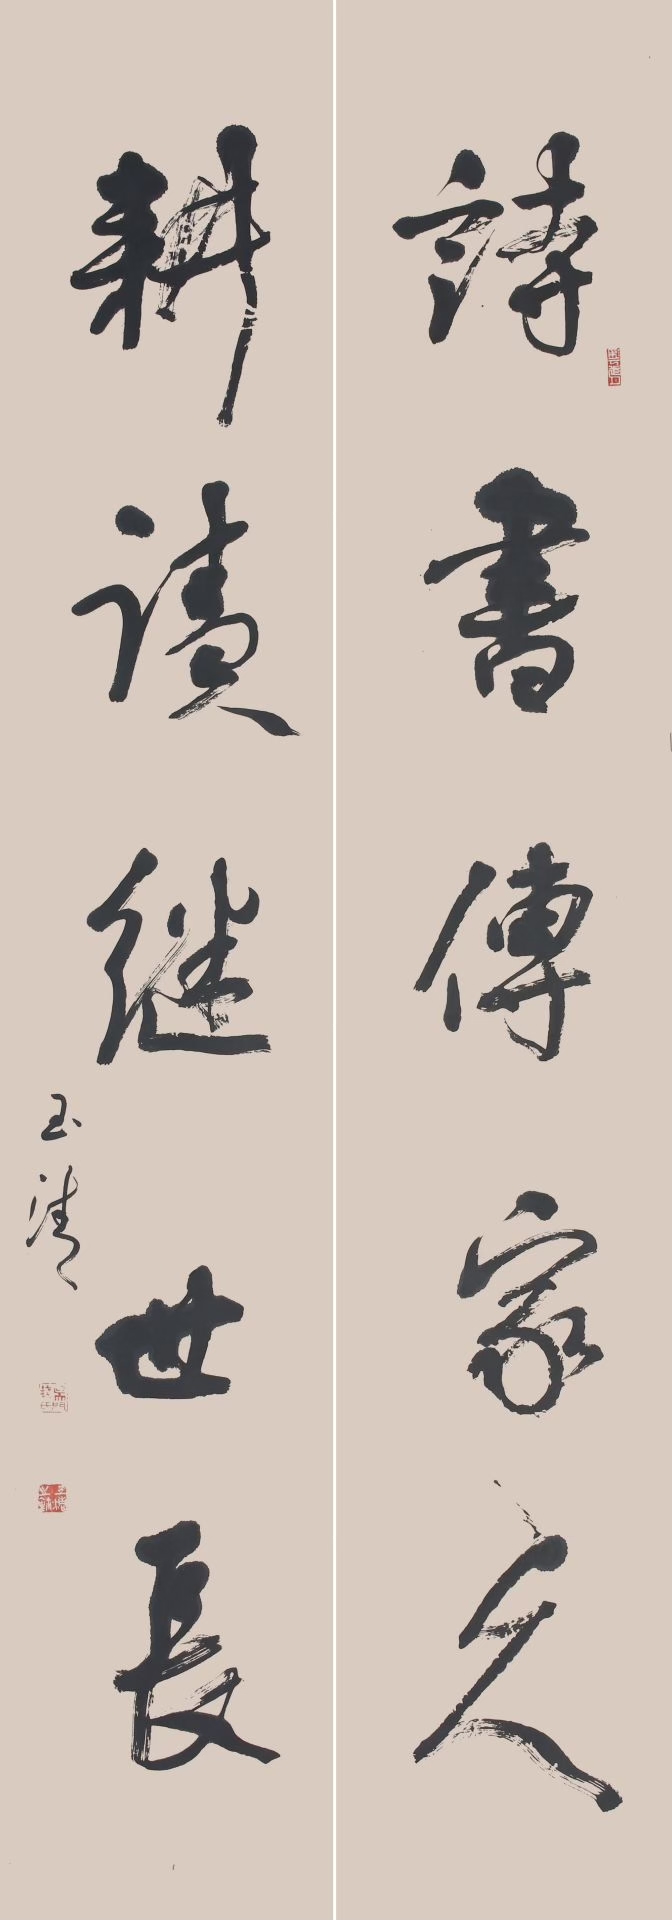 詩書傳家久
耕讀继世長
玉清